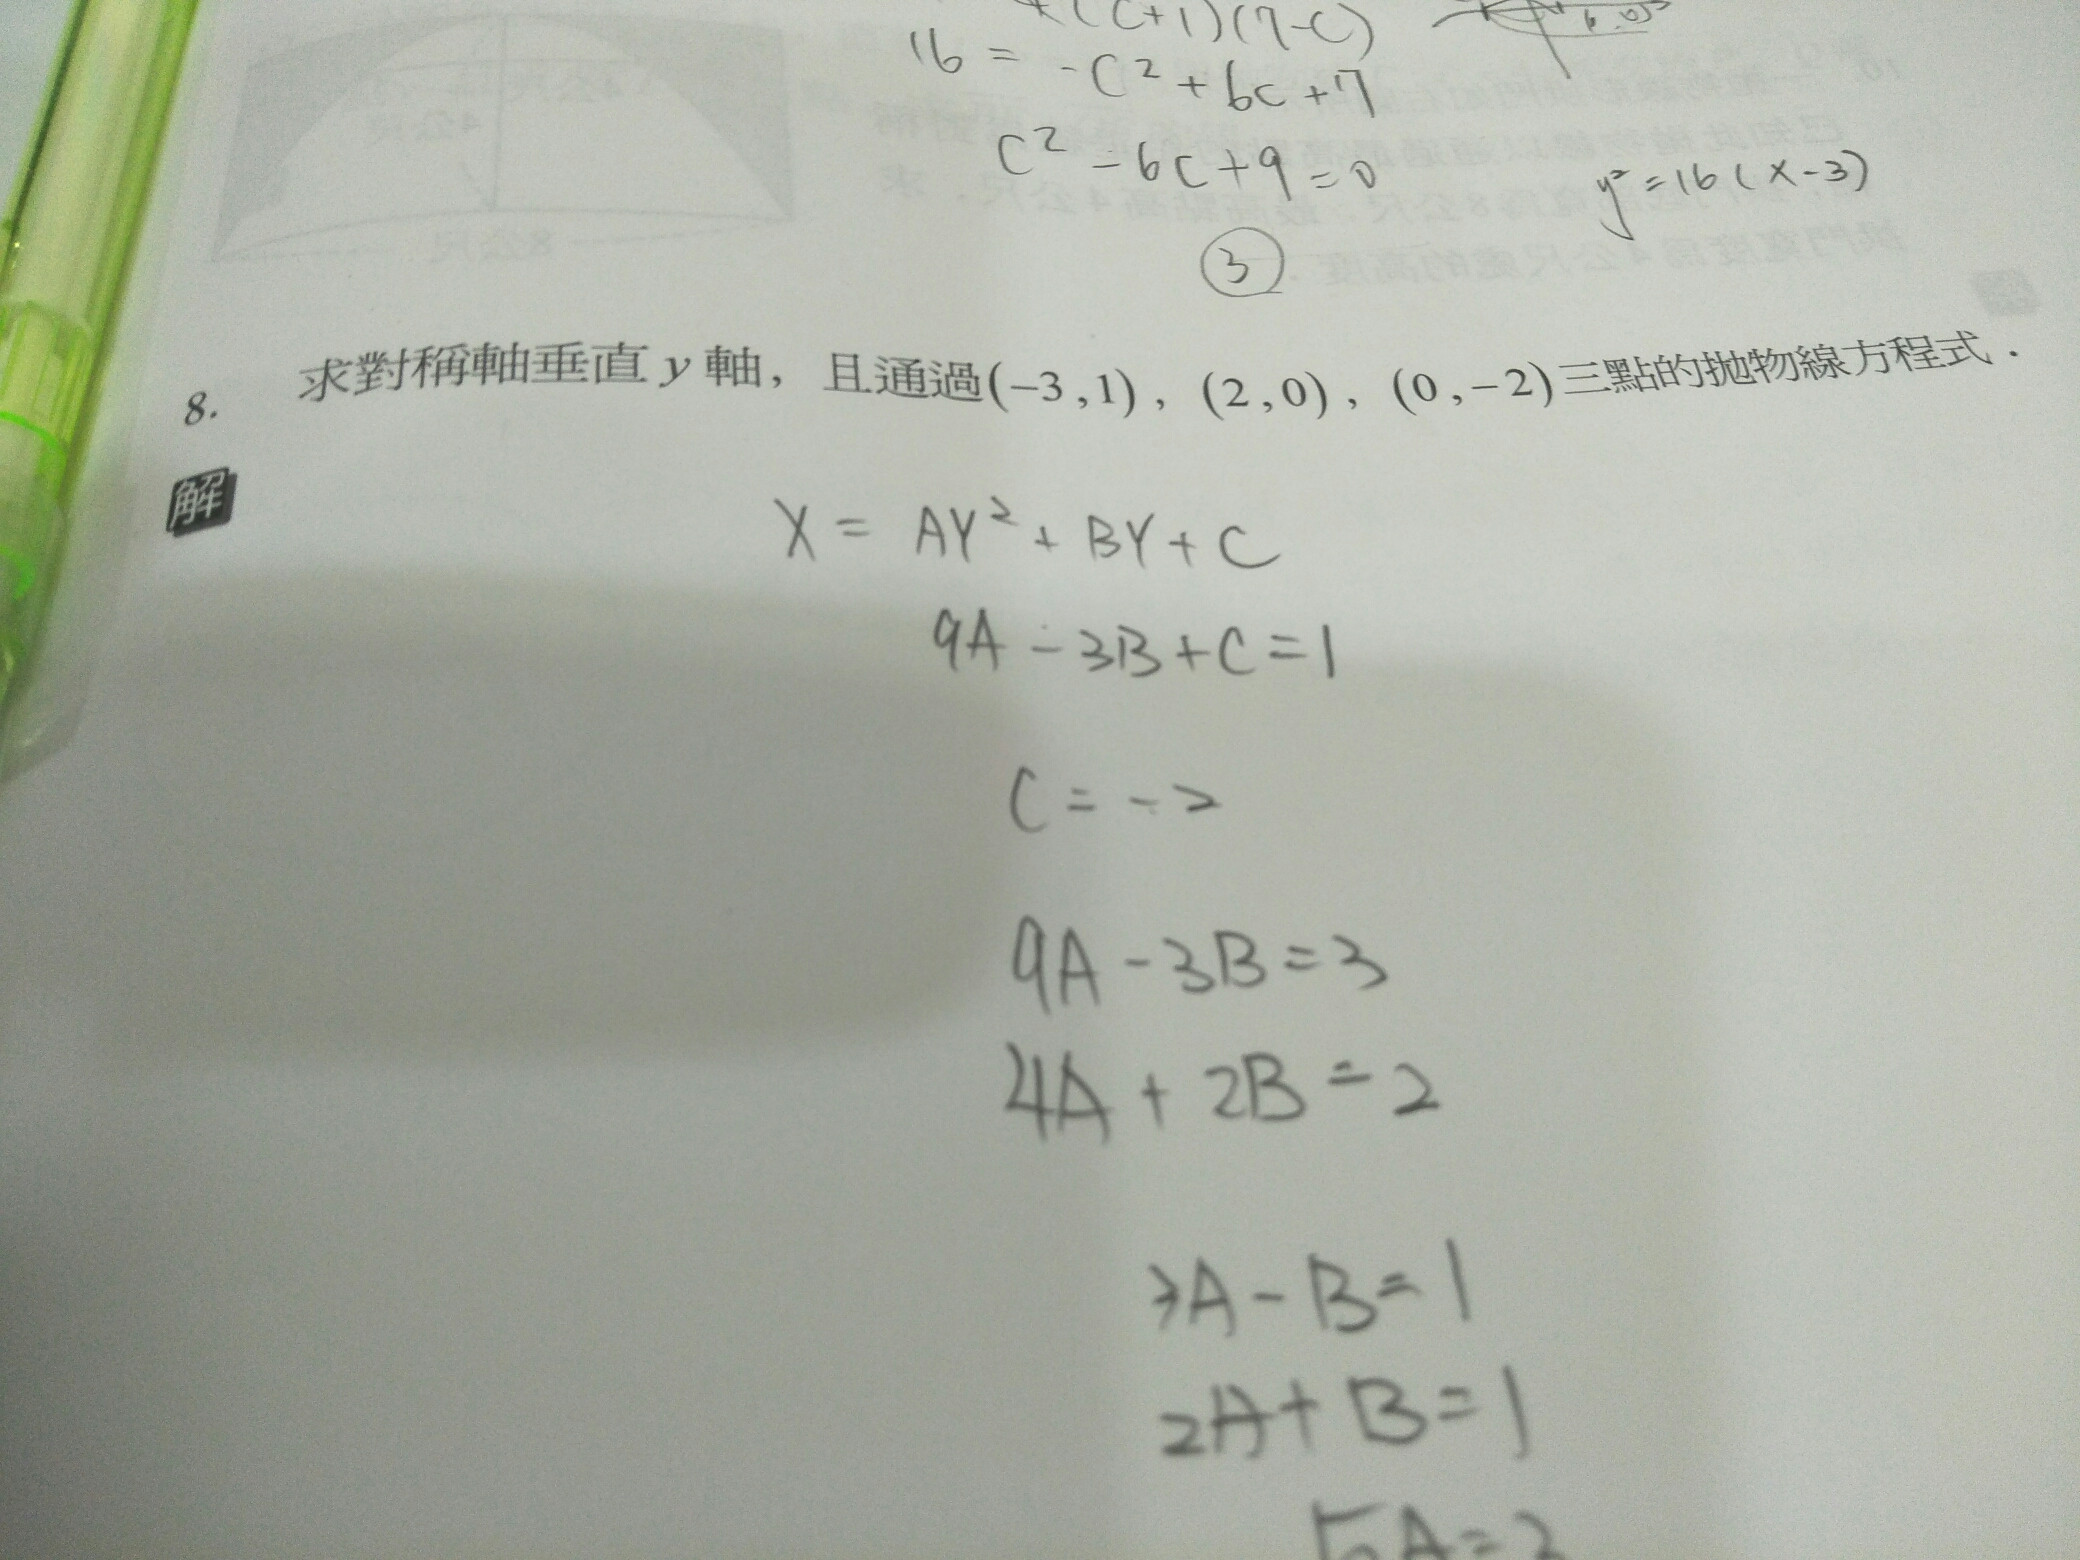 (C+1)(7-C)
16 = -C² + 6C + 7
C² - 6C + 9 = 0
y² = 16(x-3)
3
8. 求對稱軸垂直 y 軸，且通過(-3,1)，(2,0)，(0,-2)三點的拋物線方程式．
解
X = AY² + BY + C
9A - 3B + C = 1
C = -2
9A - 3B = 3
4A + 2B = 2
3A - B = 1
2A + B = 1
5A = 2